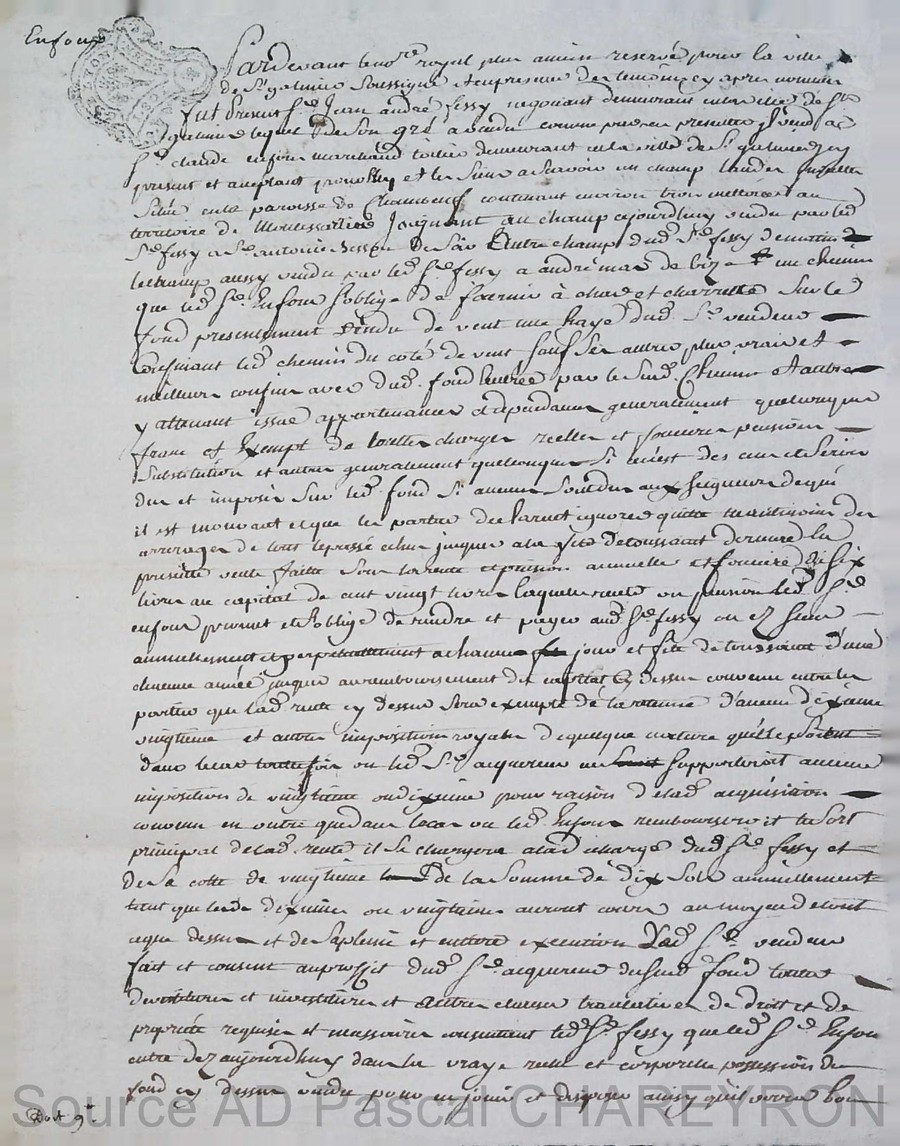 Enfour
Pardevant le no.re royal plus ancien reservé pour la ville
de St galmier soussigné et en presence des temoins cy apres nommés
fut present Sr. Jean andré fessy negotiant demeurant en la ville de St
galmier lequel de son gré a vendu comme par ces presentes il vend à
Sr. claude enfour marchand toilier demeurant en la ville de St galmier icy
present et acceptant pour luy et les siens a scavoir un champ
situé en la paroisse de Chambœuf contenant environ trois metterées au
territoire de joignant au champ ajourdhuy vendu par led.
Sr. fessy a Sr. antoine de soir autre champ dud. Sr. fessy de matin
le champ aussy vendu par led. Sr. fessy a andré de bize un chemin
que led. Sr. Enfour s'oblige de fournir à char et charrette sur le
fond presentement vendu de vent une haye dud. Sr. vendeur
confinant led. chemin du coté de vent sauf ses autres plus vrais et
meilleurs confins avec dud. fond l'entrée par le susd. chemin et autres
y attenant issue appartenances et dependances generalement quelconques
franc et Exempt de toutes charges reelles et foncieres pensions
substitution et autres generalement quelconques si ce n'est des cens et servis
dus et imposés sur led. fond si aucuns sont dus aux seigneurs de qui
il est mouvant et que les parties declarent ignorer quitte neantmoins des
arrerages de tout le passé echus jusques a la fete de toussaint derniere la
presente vente faitte sous la rente et pension annuelle et fonciere de six
livres au capital de cent vingt livres laquelle rente ou pension led. Sr.
enfour promet et s'oblige de rendre et payer aud. Sr. fessy ou ez siens
annuellement et perpetuellement a chacun jour et fete de toussaint d'une
chacune année jusques au remboursement du capital cy dessus convenu entre les
parties que lad. rente cy dessus sera exempte de la retenue d'aucun dixieme
vingtieme et autres impositions royales de quelque nature qu'elles soient
dans le cas toutefois ou led. Sr. acquereur ne supporteroit aucune
imposition de vingtieme ou dixieme pour raison de lad. acquisition
convenu en outre que dans le cas ou led. Enfour rembourseroit le sort
principal de lad. rente il se chargera a la decharge dud. Sr. fessy et
de sa cotte de vingtieme de la somme de dix sols annuellement
tant que lesd. dixieme ou vingtieme auront cours au moyen de tout
ce que dessus et de sa pleine et entiere execution led. Sr. vendeur
fait et consent au proffit dud. Sr. acquereur du susd. fond toutes
devetitures et investitures et autres clauses translatives de droit et de
proprieté requises et necessaires consentant led. Sr. fessy que led. Sr. Enfour
entre dez aujourdhuy dans la vraye reelle et corporelle possession du
fond cy dessus vendu pour en jouir et disposer ainsy qu'il verra bon
Source AD Pascal CHAREYRON